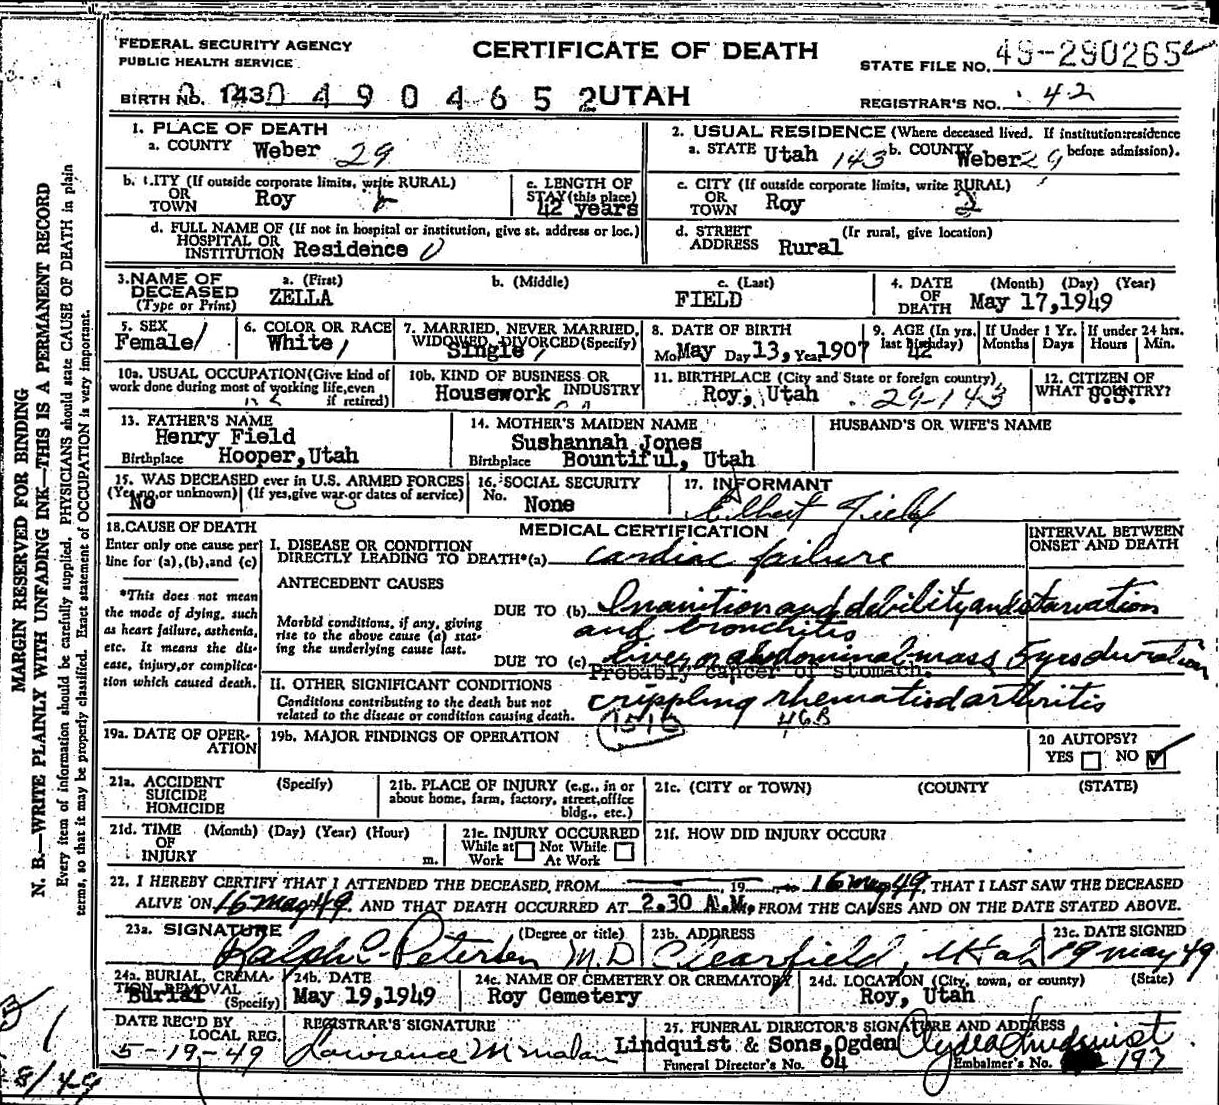 FEDERAL SECURITY AGENCY
PUBLIC HEALTH SERVICE
CERTIFICATE OF DEATH
STATE FILE NO. 49-290265
BIRTH NO. 1430 490 4652 UTAH
REGISTRAR'S NO. 42
1. PLACE OF DEATH
a. COUNTY Weber 29
2. USUAL RESIDENCE (Where deceased lived. If institution:residence before admission).
a. STATE Utah 143 b. COUNTY Weber 29
b. CITY (If outside corporate limits, write RURAL)
OR TOWN Roy
c. LENGTH OF STAY (this place)
42 years
c. CITY (If outside corporate limits, write RURAL)
OR TOWN Roy
d. FULL NAME OF (If not in hospital or institution, give st. address or loc.)
HOSPITAL OR INSTITUTION Residence 0
d. STREET ADDRESS (If rural, give location)
Rural
3. NAME OF DECEASED (Type or Print)
a. (First) ZELLA
b. (Middle)
c. (Last) FIELD
4. DATE OF DEATH (Month) (Day) (Year)
May 17,1949
5. SEX
Female
6. COLOR OR RACE
White
7. MARRIED, NEVER MARRIED, WIDOWED, DIVORCED (Specify)
Single
8. DATE OF BIRTH
Mo. May Day 13, Year 1907
9. AGE (In yrs. last birthday)
42
If Under 1 Yr. Months Days
If under 24 hrs. Hours Min.
10a. USUAL OCCUPATION (Give kind of work done during most of working life, even if retired)
10b. KIND OF BUSINESS OR INDUSTRY
Housework
11. BIRTHPLACE (City and State or foreign country)
Roy, Utah 29-143
12. CITIZEN OF WHAT COUNTRY?
U.S.
13. FATHER'S NAME
Henry Field
Birthplace Hooper,Utah
14. MOTHER'S MAIDEN NAME
Sushannah Jones
Birthplace Bountiful, Utah
HUSBAND'S OR WIFE'S NAME
15. WAS DECEASED ever in U.S. ARMED FORCES
(Yes, no, or unknown) (If yes, give war or dates of service)
No
16. SOCIAL SECURITY No.
None
17. INFORMANT
Elbert Field
18. CAUSE OF DEATH
Enter only one cause per line for (a), (b), and (c)
*This does not mean the mode of dying, such as heart failure, asthenia, etc. It means the disease, injury, or complication which caused death.
MEDICAL CERTIFICATION
INTERVAL BETWEEN ONSET AND DEATH
I. DISEASE OR CONDITION DIRECTLY LEADING TO DEATH*(a) cardiac failure
ANTECEDENT CAUSES
Morbid conditions, if any, giving rise to the above cause (a) stating the underlying cause last.
DUE TO (b) Inanition and debility and starvation
and bronchitis
DUE TO (c) Liver or abdominal mass 5 yrs duration
Probably cancer of stomach.
II. OTHER SIGNIFICANT CONDITIONS
Conditions contributing to the death but not related to the disease or condition causing death.
crippling rheumatoid arthritis
151B 46B
19a. DATE OF OPERATION
19b. MAJOR FINDINGS OF OPERATION
20 AUTOPSY?
YES NO
21a. ACCIDENT SUICIDE HOMICIDE (Specify)
21b. PLACE OF INJURY (e.g., in or about home, farm, factory, street, office bldg., etc.)
21c. (CITY or TOWN) (COUNTY) (STATE)
21d. TIME OF INJURY (Month) (Day) (Year) (Hour) m.
21e. INJURY OCCURRED
While at Work Not While At Work
21f. HOW DID INJURY OCCUR?
22. I HEREBY CERTIFY THAT I ATTENDED THE DECEASED, FROM 19 to 16 May 49, THAT I LAST SAW THE DECEASED
ALIVE ON 16 May 49. AND THAT DEATH OCCURRED AT 2.30 A.M. FROM THE CAUSES AND ON THE DATE STATED ABOVE.
23a. SIGNATURE (Degree or title)
Ralph C. Petersen M.D
23b. ADDRESS
Clearfield, Utah
23c. DATE SIGNED
19 May 49
24a. BURIAL, CREMATION, REMOVAL (Specify)
Burial
24b. DATE
May 19,1949
24c. NAME OF CEMETERY OR CREMATORY
Roy Cemetery
24d. LOCATION (City, town, or county) (State)
Roy, Utah
DATE REC'D BY LOCAL REG.
5-19-49
REGISTRAR'S SIGNATURE
Lawrence M. Malan
25. FUNERAL DIRECTOR'S SIGNATURE AND ADDRESS
Lindquist & Sons,Ogden Clyde Lindquist
Funeral Director's No. 64
Embalmer's No. 197
MARGIN RESERVED FOR BINDING
N. B.—WRITE PLAINLY WITH UNFADING INK—THIS IS A PERMANENT RECORD
Every item of information should be carefully supplied. PHYSICIANS should state CAUSE OF DEATH in plain
terms, so that it may be properly classified. Exact statement of OCCUPATION is very important.